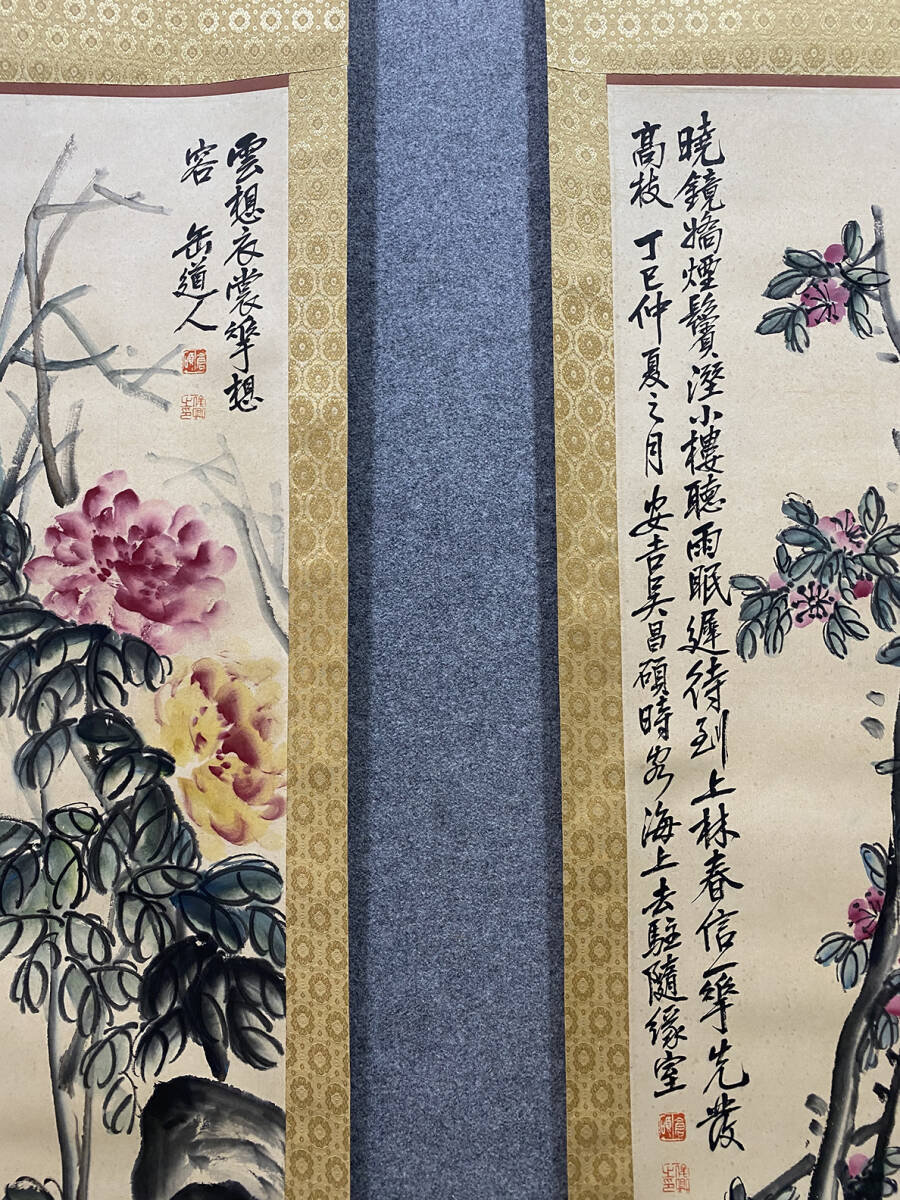 曉鏡嬌煙鬢溼小樓聽雨眠遲待到上林春信一華先發
高枝 丁巳仲夏之月安吉吳昌碩時客海上去駐隨緣室
雲想衣裳華想
容 缶道人